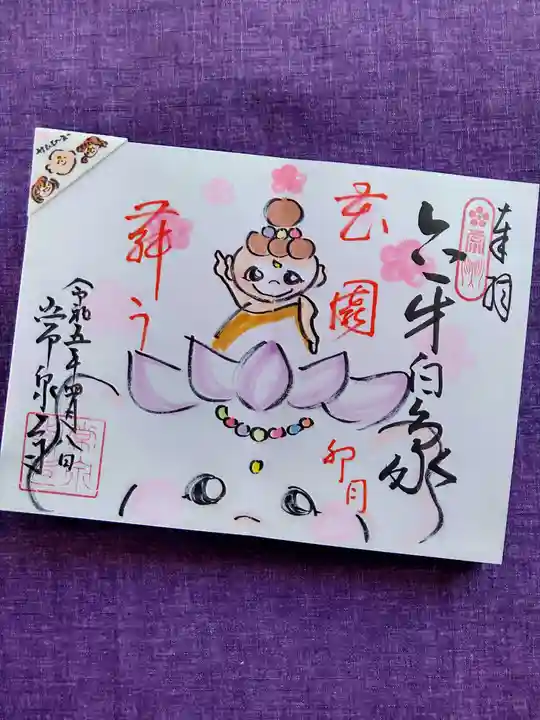 奉拝
六牙白象
花園
卯月
舞う
令和五年四月八日
常泉寺